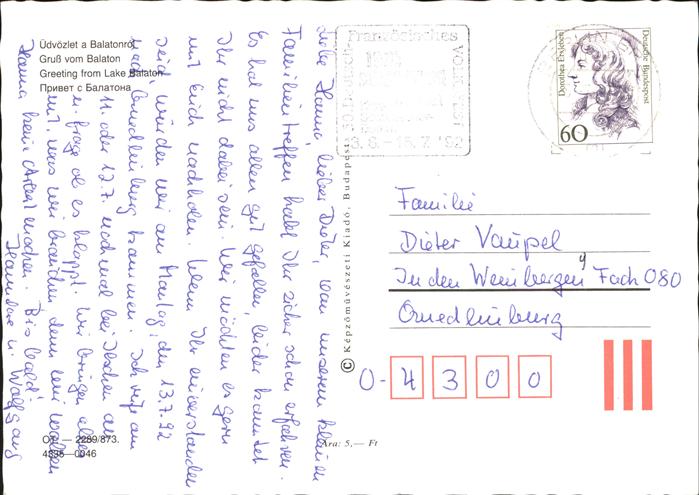 Üdvözlet a Balatonról
Gruß vom Balaton
Greeting from Lake Balaton
Привет с Балатона
Liebe Hanna, lieber Dieter, von unserem kleinen
Familientreffen habt Ihr sicher schon erfahren.
Es hat uns allen gut gefallen, leider konntet
Ihr nicht dabei sein. Wir möchten es gern
mit Euch nachholen. Wenn Ihr einverstanden
seid würden wir am Montag, den 13.7.92
nach Quedlinburg kommen. Ich rufe am
11. oder 12.7. nochmal bei an
u. frage ob es klappt. Wir bringen alles
mit, was wir brauchen, denn wir wollen
Hanna kein Arbeit machen. Bis bald!
Hannelore u. Wolfgang
© Képzőművészeti Kiadó, Budapest
Französisches
3.6.-15.7.'92
Dorothea Erxleben
Deutsche Bundespost
60
Familie
Dieter Vaupel
In den Weinbergen Fach 080
Quedlinburg
O-4300
- 2259/873.
4395-0046
Ára: 5,— Ft